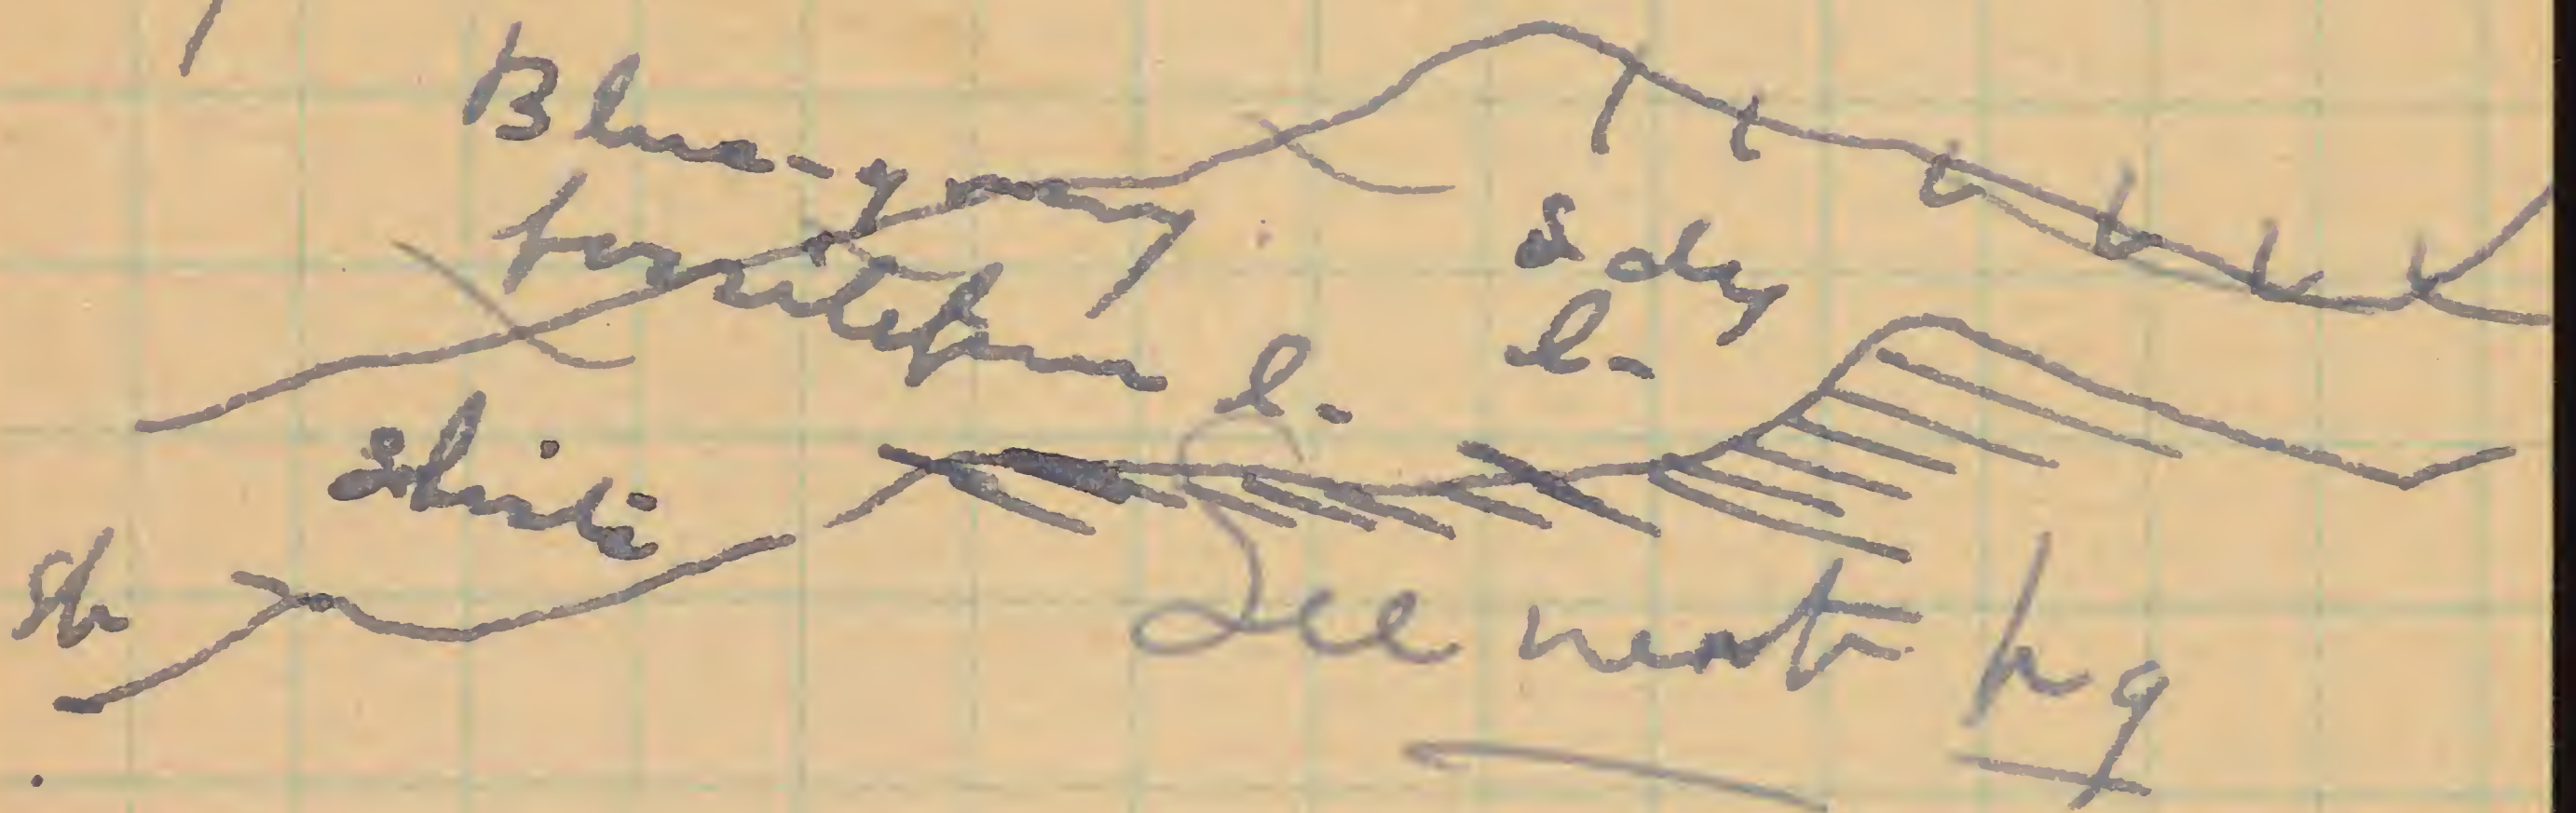 Blue-gray
fossiliferous l.
Sdy
l.
Sh
See next pg